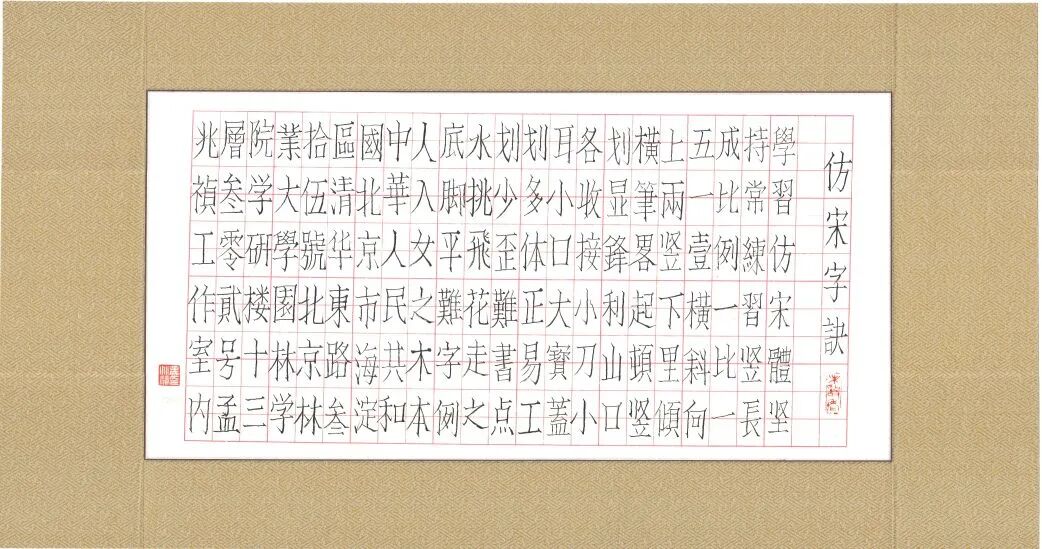 仿宋字訣
學習仿宋體坚
持常練習竖長
成比例一比一
五一壹橫斜向
上兩竖下里傾
橫筆畧起頓竖
划显鋒利山口
各收接小刀小
耳小口大寶蓋
划多体正易工
划少歪難書点
水挑飛花走之
底脚平難字例
人入女之木本
中華人民共和
國北京市海淀
區清华東路叁
拾伍號北京林
業大學園林学
院学研楼十三
層叁零貳号孟
兆禎工作室内